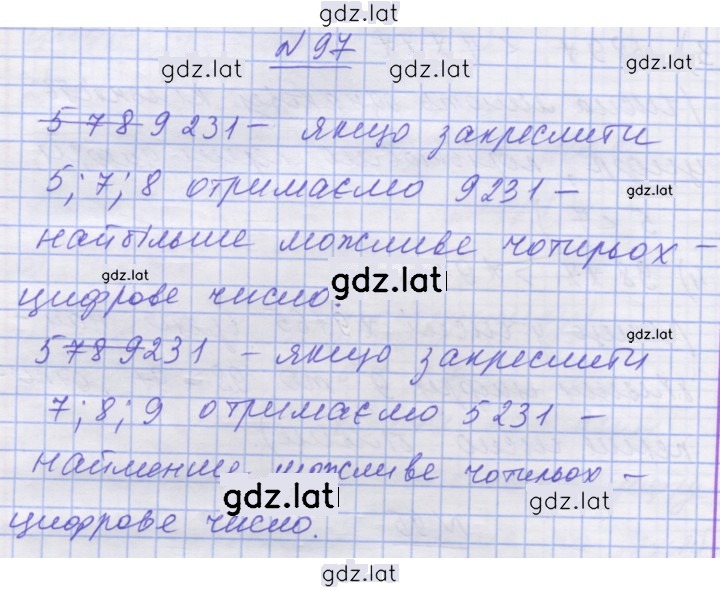 gdz.lat
N 97
gdz.lat gdz.lat gdz.lat
5 7 8 9 231 – якщо закреслити
5; 7; 8 отримаємо 9231 – gdz.lat
найбільше можливе чотирьох –
gdz.lat gdz.lat
цифрове число:
gdz.lat
5 7 8 9231 – якщо закреслити
7; 8; 9 отримаємо 5231 –
найменше можливе чотирьох –
gdz.lat gdz.lat
цифрове число.
gdz.lat